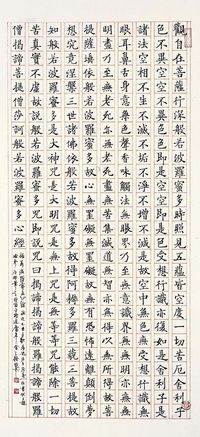 觀自在菩薩行深般若波羅蜜多時照見五蘊皆空度一切苦厄舍利子
色不異空空不異色色即是空空即是色受想行識亦復如是舍利子是
諸法空相不生不滅不垢不淨不增不減是故空中無色無受想行識無
眼耳鼻舌身意無色聲香味觸法無眼界乃至無意識界無無明亦無無
明盡乃至無老死亦無老死盡無苦集滅道無智亦無得以無所得故菩
提薩埵依般若波羅蜜多故心無罣礙無罣礙故無有恐怖遠離顛倒夢
想究竟涅槃三世諸佛依般若波羅蜜多故得阿耨多羅三藐三菩提故
知般若波羅蜜多是大神咒是大明咒是無上咒是無等等咒能除一切
苦真實不虛故說般若波羅蜜多咒即說咒曰揭諦揭諦般羅揭諦般羅
僧揭諦菩提僧莎訶般若波羅蜜多心經